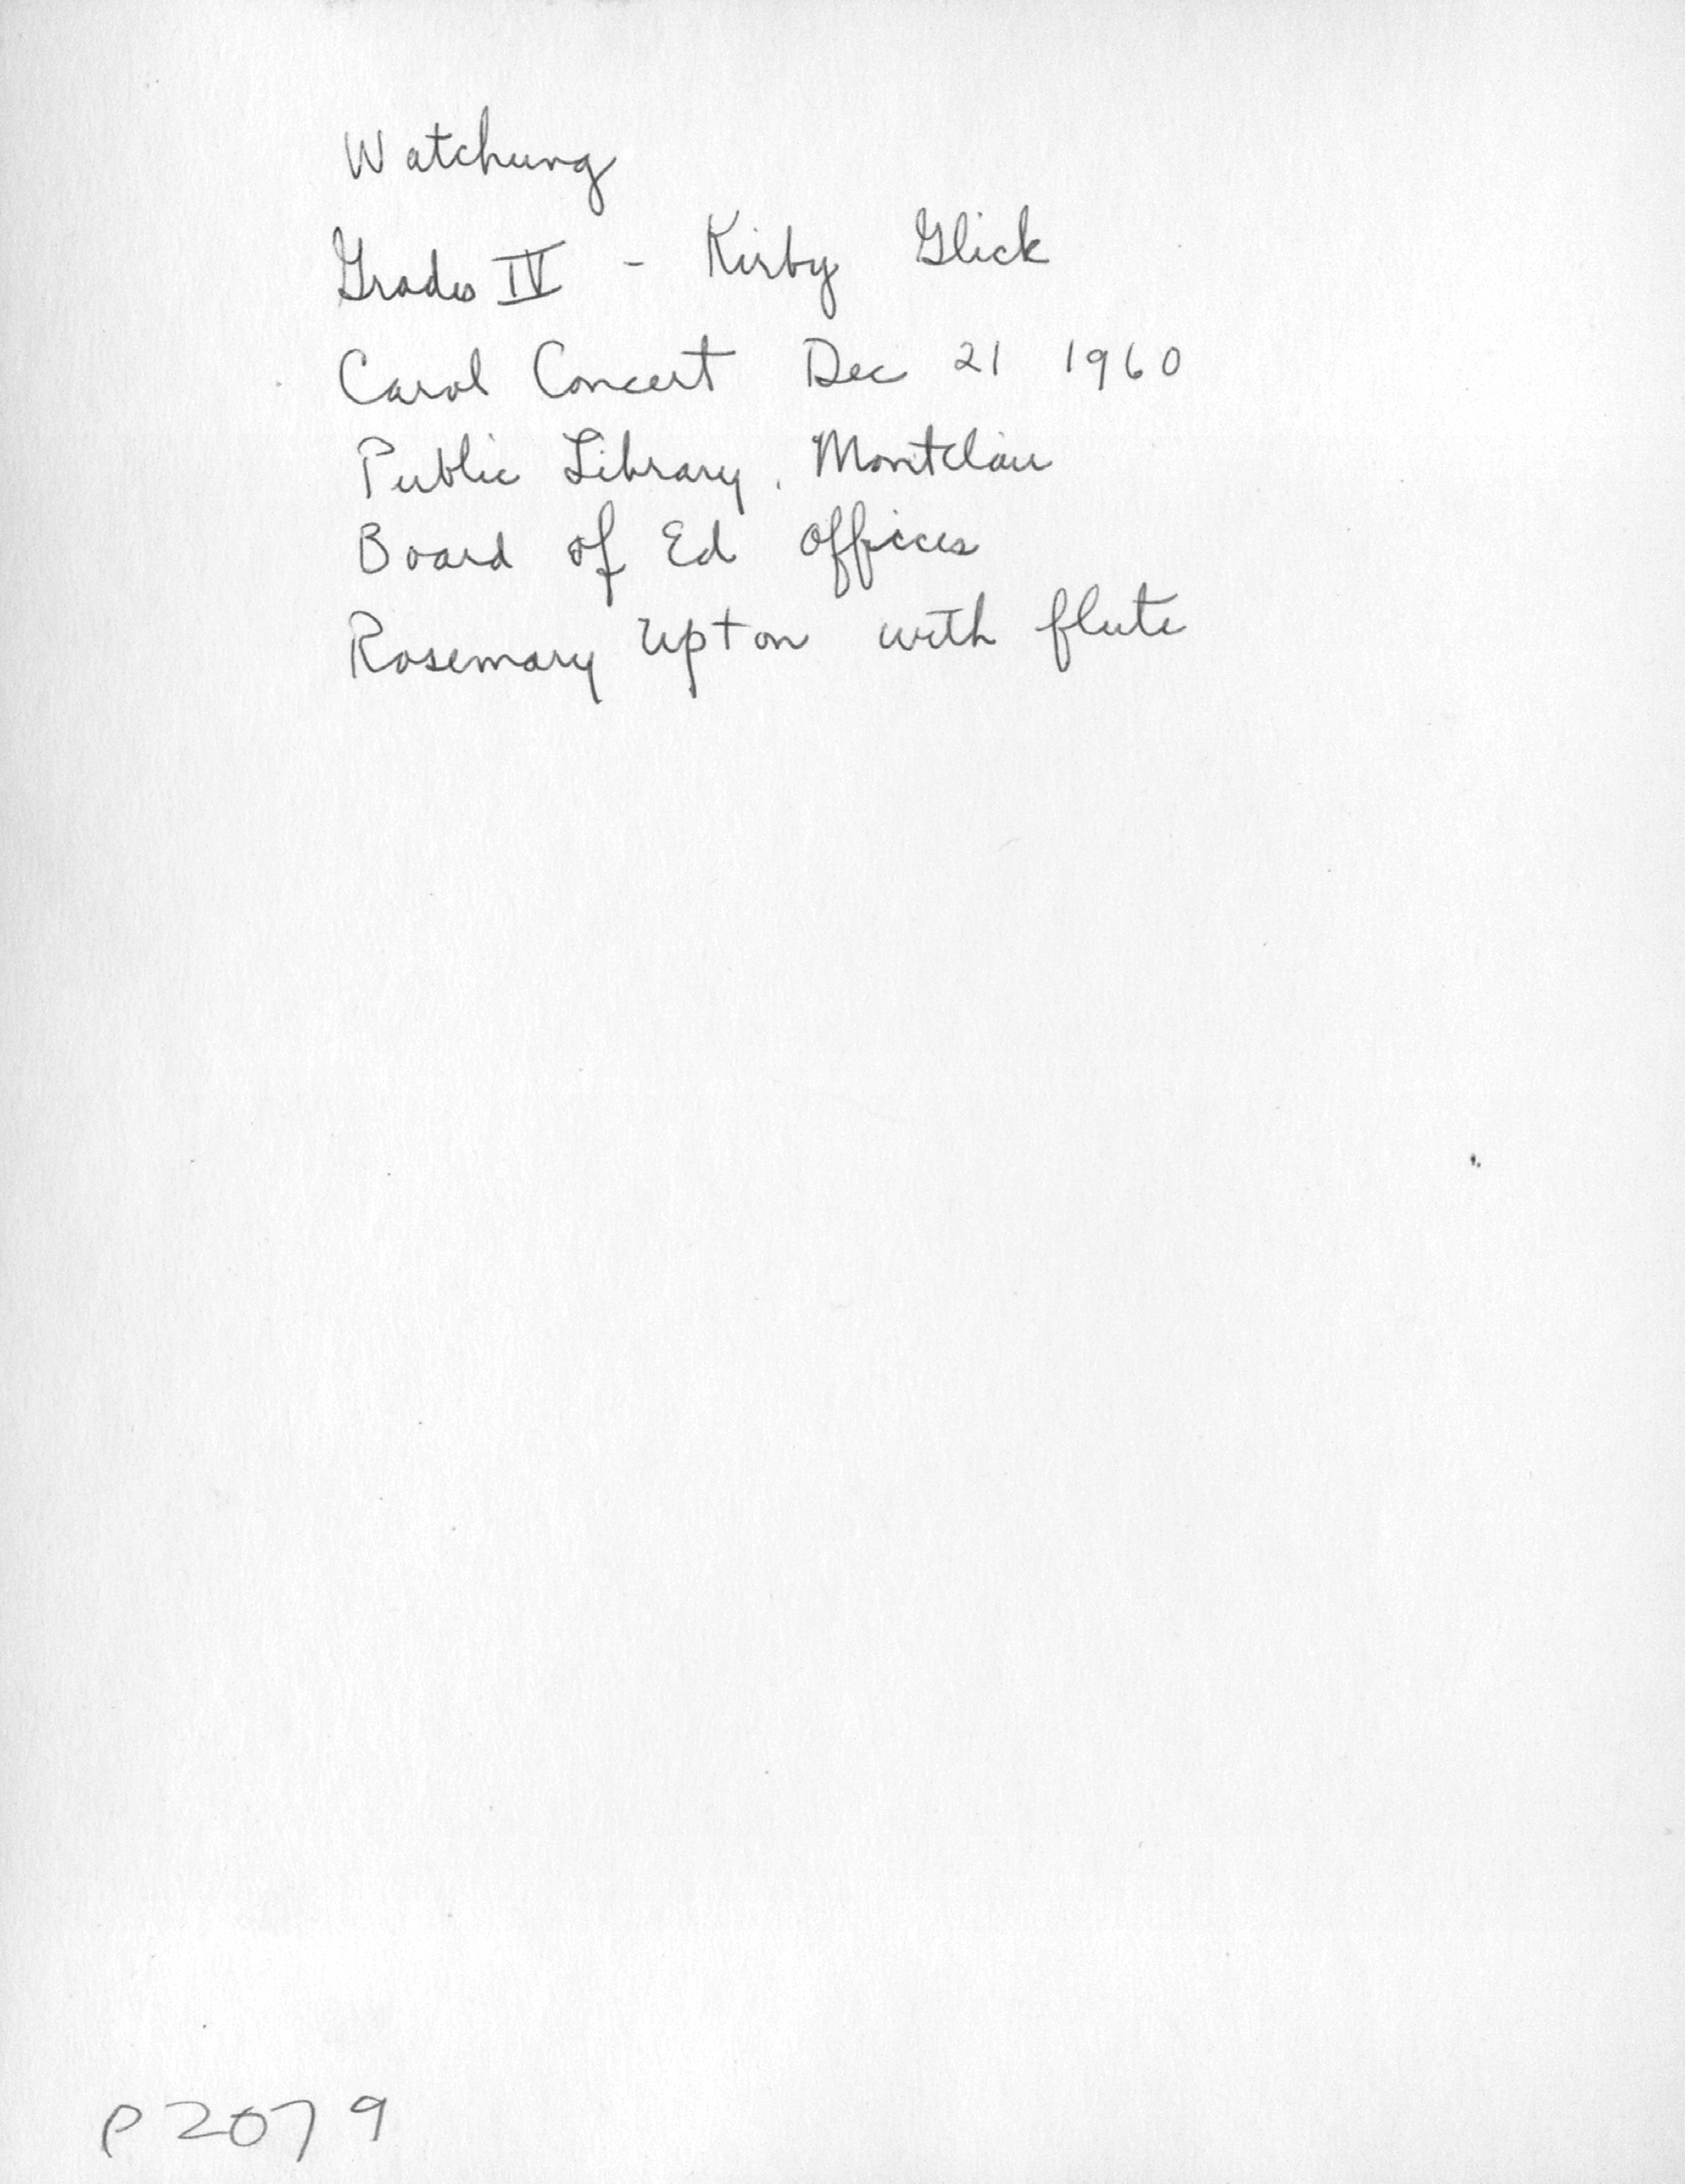 Watchung
Grades IV - Kirby Glick
Carol Concert Dec 21 1960
Public Library, Montclair
Board of Ed offices
Rosemary Upton with flute
P2079